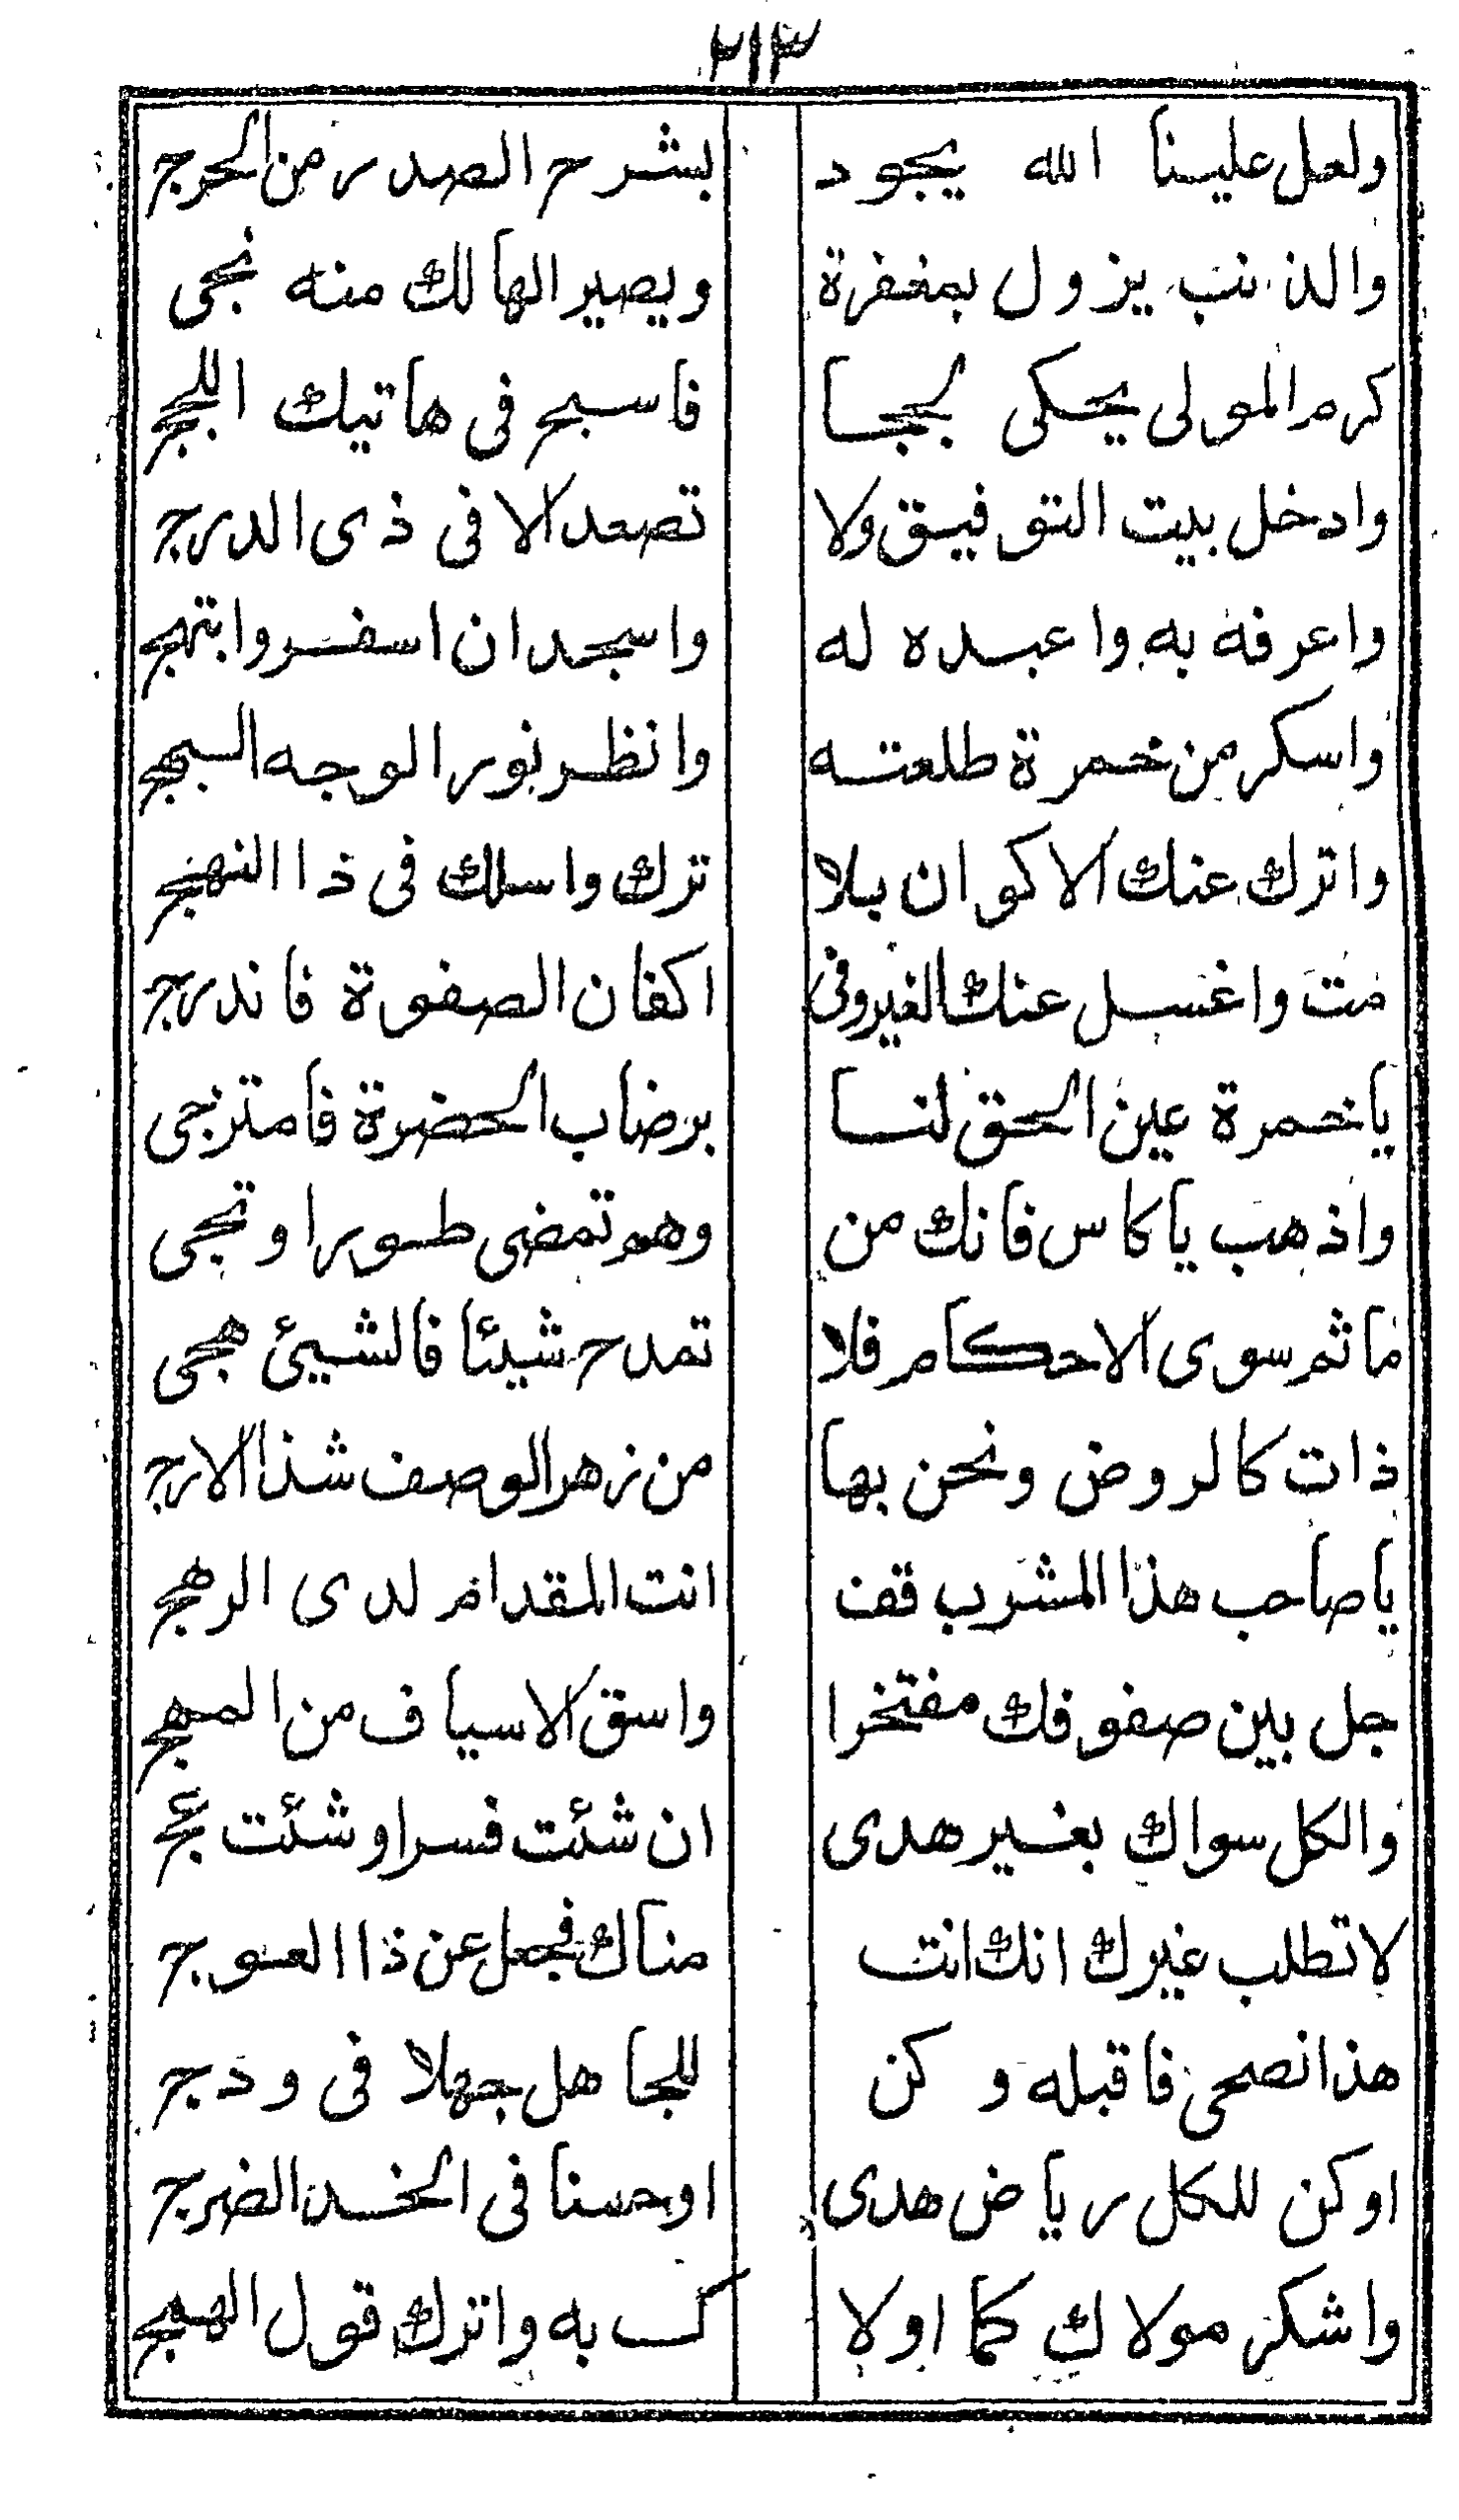 ٢١٣
ولعل علينا الله يجود بشرح الصدر من الحرج
والذنب يزول بمغفرة ويصير الهالك منه نجى
كرم المولى يحكى لججا فاسبح فى هاتيك اللجج
وادخل بيت التوفيق ولا تصعد الا فى ذى الدرج
واعرفه به واعبده له واسجد ان اسفر وابتهج
واسكر من خمرة طلعته وانظر نور الوجه البهج
واترك عنك الاكوان بلا ترك واسلك فى ذا النهج
مت واغسل عنك الغير وفى اكفان الصفوة فاندرج
يا خمرة عين الحق لنا برضاب الحضرة فامتزجى
واذهب يا كاس فانك من وهم تمضى طورا وتجى
ما ثم سوى الاحكام فلا تمدح شيئا فالشيئ هجى
ذات كالروض ونحن بها من زهر الوصف شذا الارج
يا صاحب هذا المشرب قف انت المقدام لدى الرهج
جل بين صفوفك مفتخرا واسق الاسياف من المهج
والكل سواك بغير هدى ان شئت فسر او شئت عج
لا تطلب غيرك انك انت مناك فجعل عن ذا العوج
هذا نصحى فاقبله وكن للجاهل جهلا فى ودج
او كن للكل رياض هدى او حسنا فى الخد الضرج
واشكر مولاك كما اولا ك به واترك قول الهمج